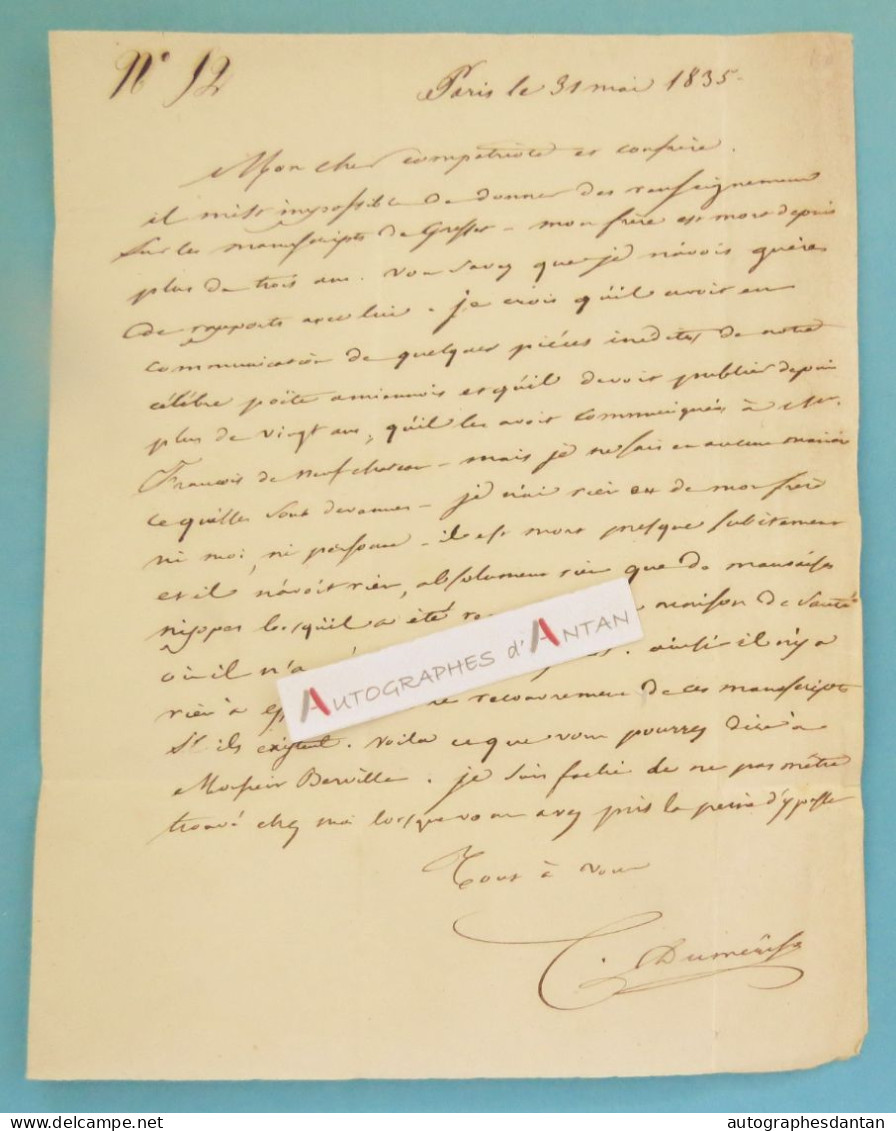 N° 52
Paris le 31 mai 1835
Mon cher compatriote et confrère.
il m'est impossible de donner des renseignemens
sur les manuscripts de Gresset – mon frère est mort depuis
plus de trois ans. vous savez que je n'avois guères
de rapports avec lui. je crois qu'il avoit eu
communication de quelques pièces inedites de notre
célèbre poëte amiennois et qu'il devoit publier depuis
plus de vingt ans, qu'il les avoit communiqués à Mr.
François de Neufchateau – mais je ne sais en aucune manière
ce qu'elles sont devenues – je n'ai rien eu de mon frère
ni moi, ni personne – il est mort presque subitement
et il n'avoit rien, absolument rien que de mauvaises
nippes lorsqu'il a été maison de santé
où il n'a ainsi il n'y a
rien à recouvrement de ces manuscripts
s'ils existent. voila ce que vous pourrez dire à
Monsieur Berville. je suis faché de ne pas m'être
trouvé chez moi lorsque vous avez pris la peine d'y passer
Tout à vous
C. Duméril
AUTOGRAPHES d'ANTAN
delcampe.net
autographesdantan